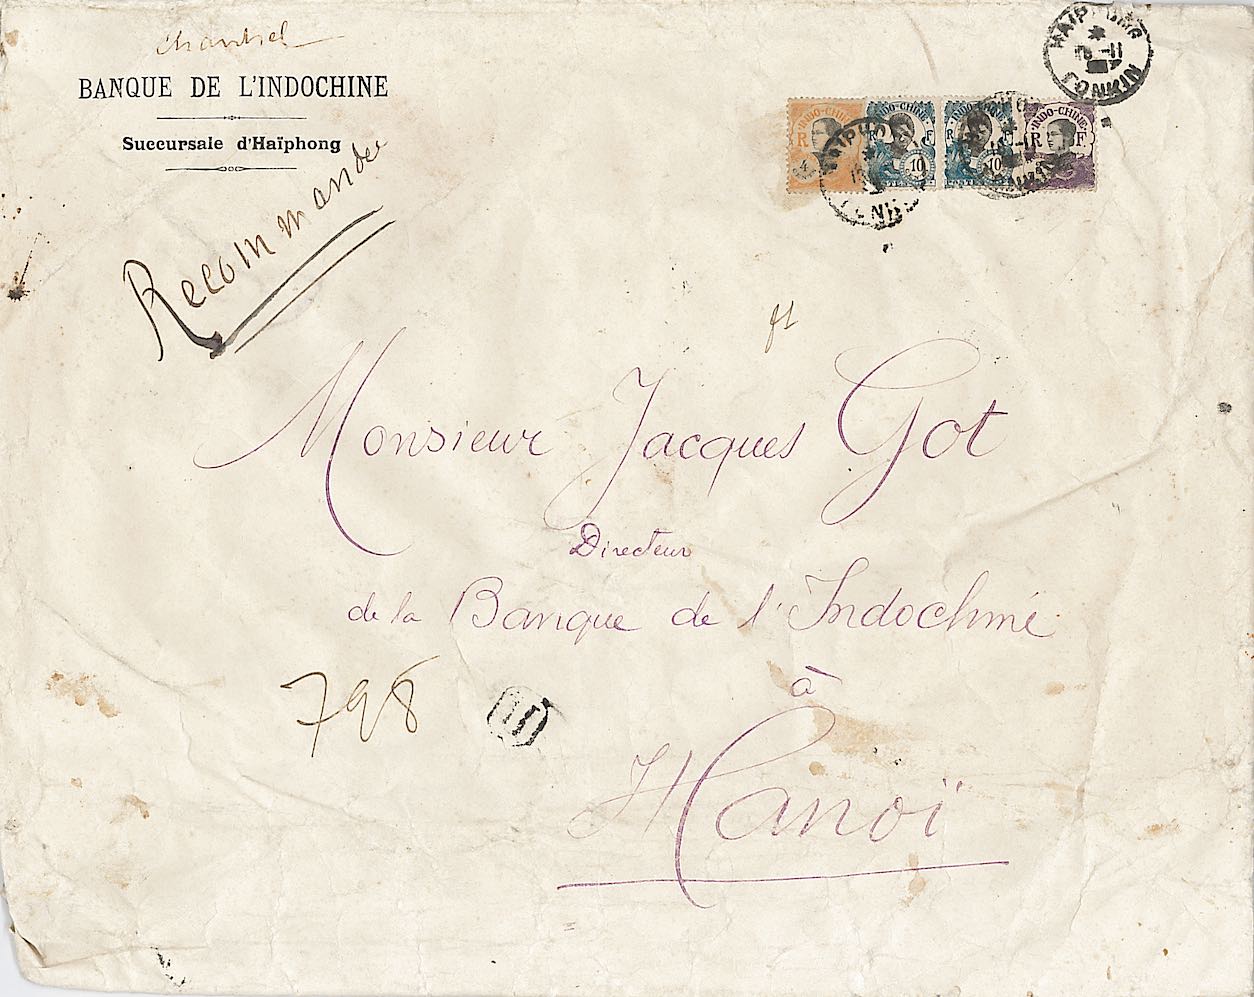 BANQUE DE L'INDOCHINE
Succursale d'Haïphong
Recommandée
HAÏPHONG
TONKIN
INDO-CHINE
R F
4
INDO-CHINE
R F
10
INDO-CHINE
R F
10
INDO-CHINE
R F
Monsieur Jacques Got
Directeur
de la Banque de l'Indochine
à
Hanoï
798
R